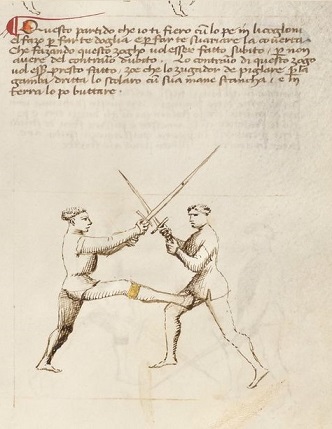 Questo partido che io ti fiero cū lo pe in li coglioni
elfazo p far te doglia e p far te suariare la couerta.
Che fazando questo zogho vol esser fatto subito, p non
auere del contrario dubito. Lo contrario di questo zogo
vol esser presto fatto, zoe che lo zugador de piglare p la
gamba dritta lo scolaro cū sua mane stancha, e in
terra lo po buttare.